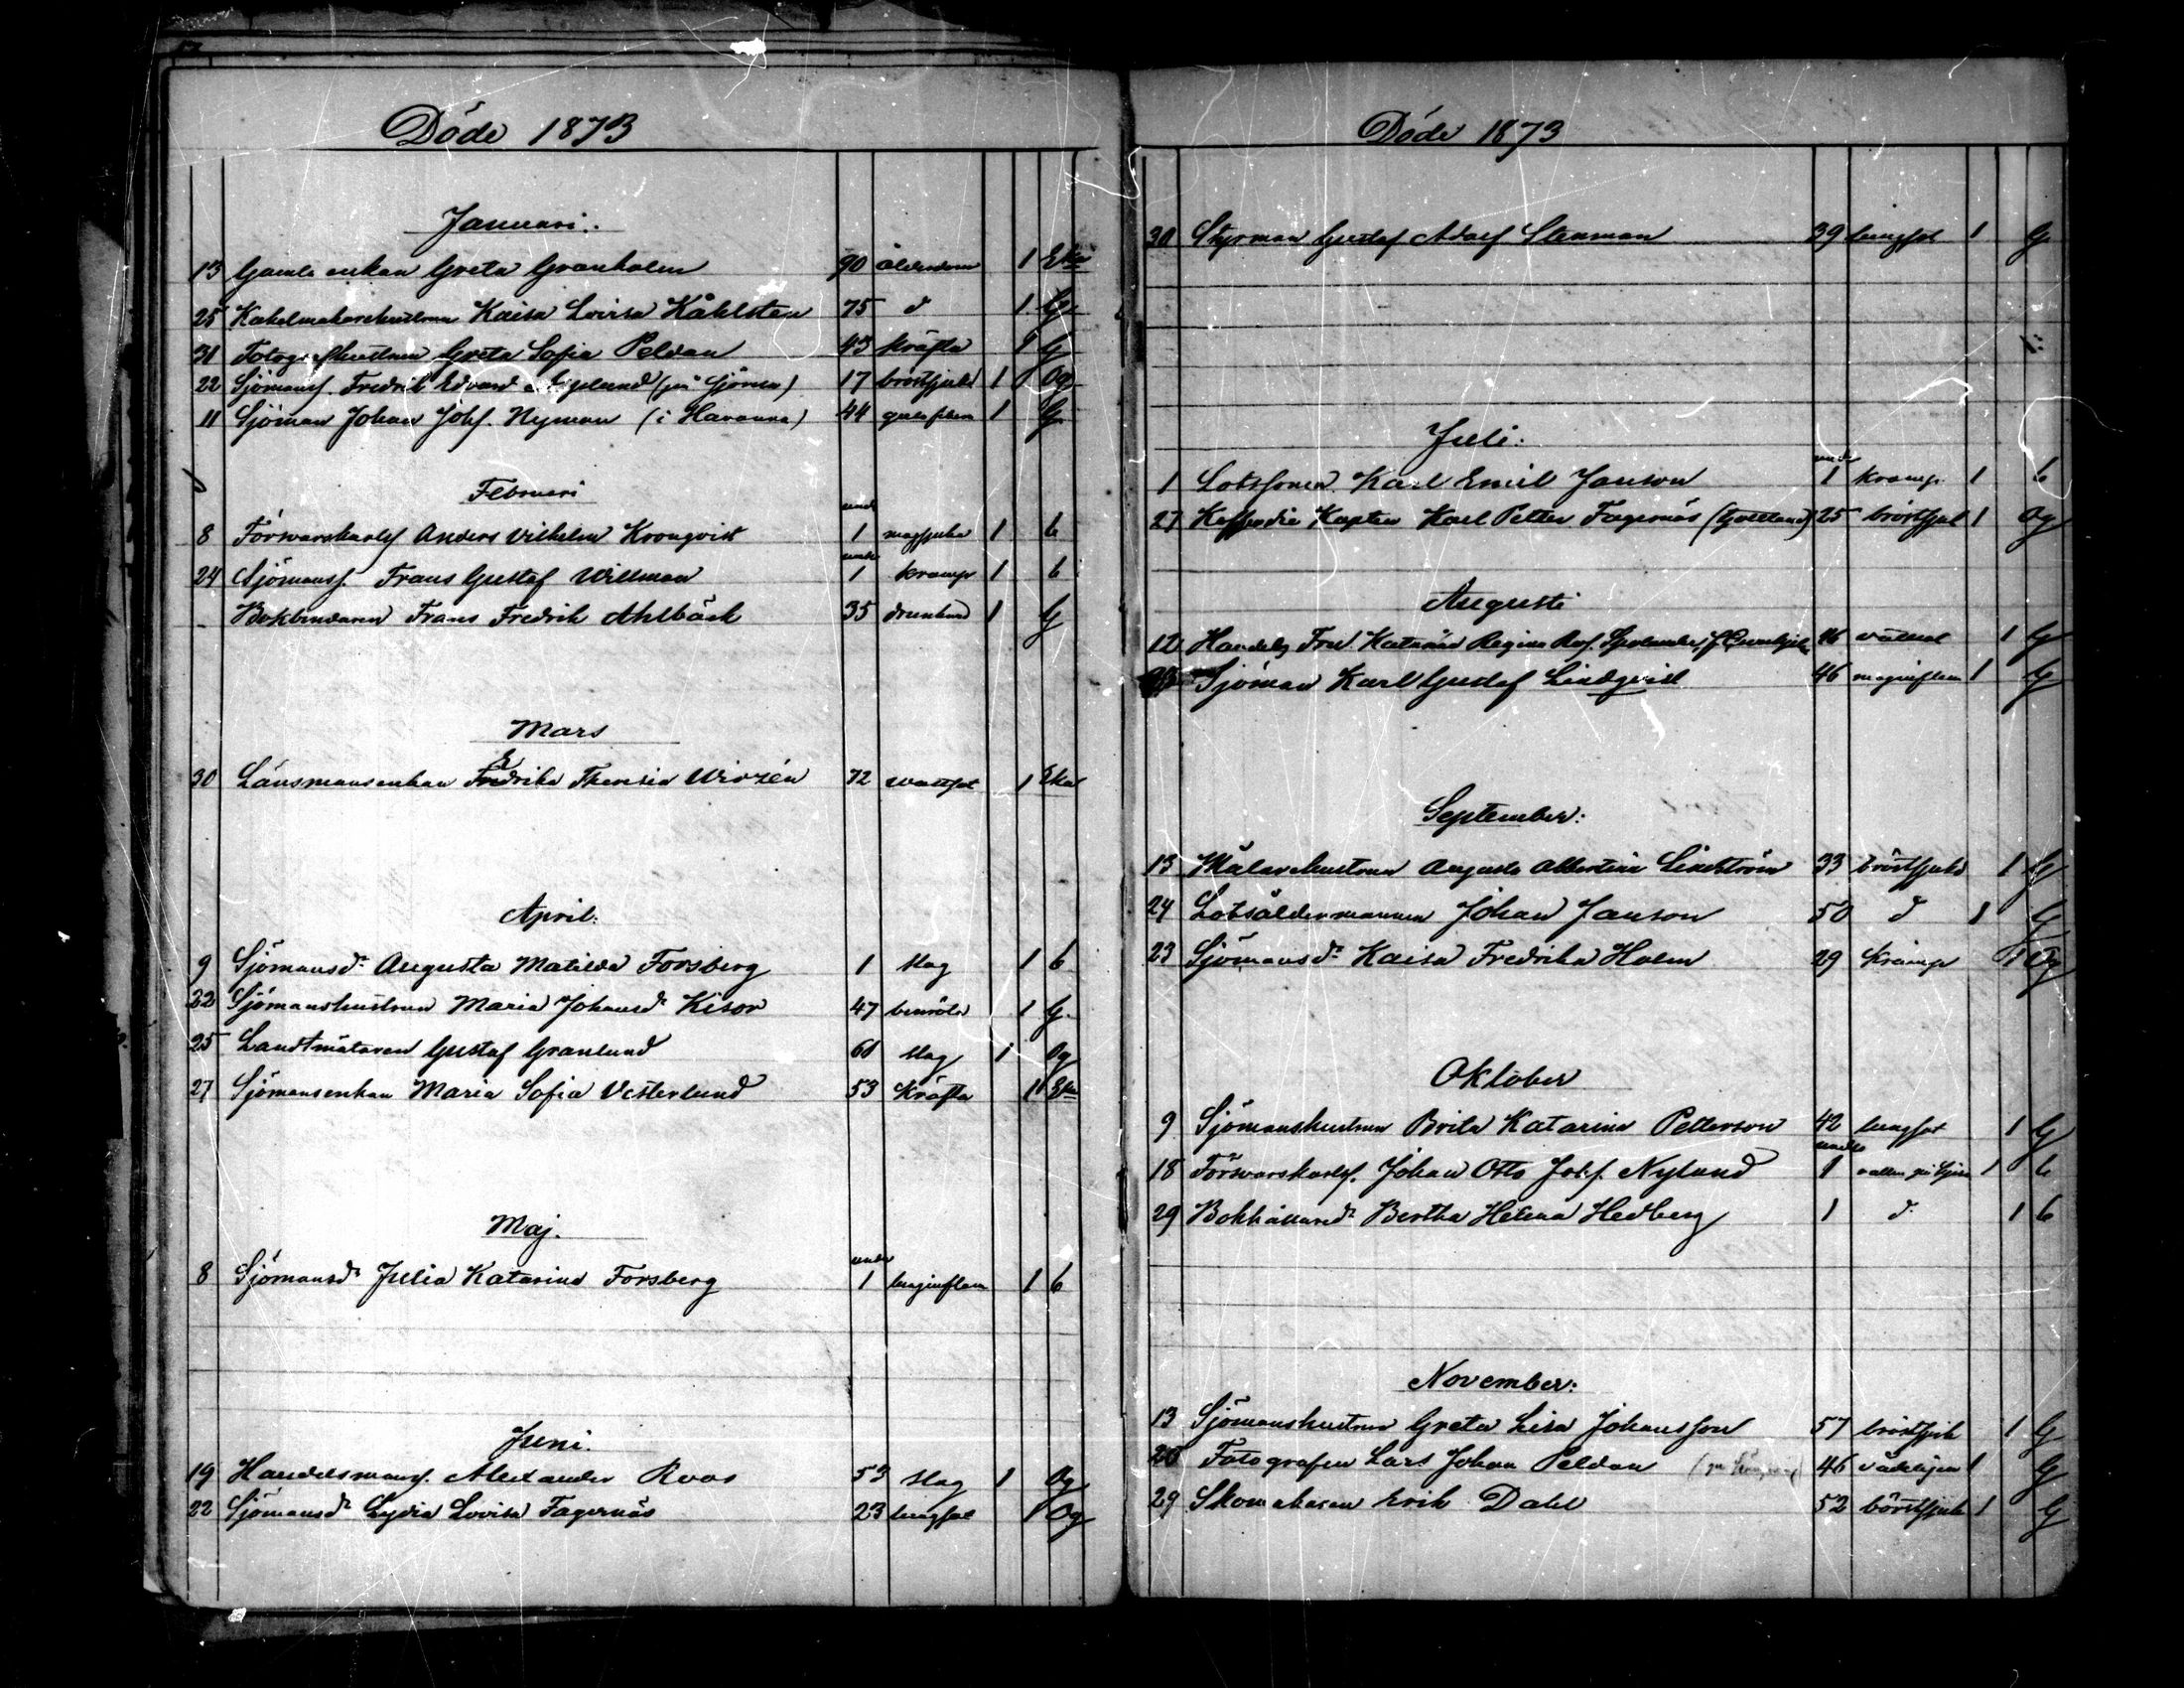 Döde 1873
Januari.
13 Gamla enkan Greta Granholm 90 ålderdom 1 Eka
25 Kakelmakarehustrun Kaisa Lovisa Kåhlsten 75 d 1 G
31 Fotografhustrun Greta Sofia Peldan 43 kräfta 1 G
22 Sjömanss. Fredrik Edvard (på Sjömen) 17 bröstsjukd 1 Og
11 Sjöman Johan Johs. Nyman (i Havanna) 44 gula febern 1 G
Februari
8 Försvarskarls Anders Vilhelm Kronqvist under 1 magsjuka 1 b
24 Sjömanss. Frans Gustaf Willman under 1 kramp 1 b
- Bokbindaren Frans Fredrik Ahlbäck 35 drunknad 1 G
Mars
30 Länsmansenkan Fredrika Theresia Wirzén 72 wattsot 1 Eka
April.
9 Sjömansdr Augusta Matilda Forsberg 1 slag 1 b
22 Sjömanshustrun Maria Johansdr Kisor 47 benröta 1 G.
25 Landtmätaren Gustaf Granlund 60 slag 1 Og
27 Sjömansenkan Maria Sofia Vesterlund 53 Kräfta 1 Eka
Maj.
8 Sjömansdr Julia Katarina Forsberg under 1 lunginflam 1 b
Juni.
19 Handelsmans. Alexander Roos 53 slag 1 Og
22 Sjömansdr Lydia Lovisa Fagernäs 23 lungsot 1 Og
Döde 1873
30 Styrman Gustaf Adolf Stenman 39 lungsot 1 G
Juli:
1 Lotssonen Karl Emil Janson under 1 kramp 1 b
27 Koffardie Kapten Karl Petter Fagernäs (Gottland) 25 bröstsjuk 1 Og
Augusti
12 Handels Fru Katarina Regina 46 1 G
Sjöman Karl Gustaf Lindqvist 46 maginflam 1 G
September:
13 Målarehustrun Augusta Albertina Lindström 33 bröstsjukd 1 G
24 Lotsåldermannen Johan Janson 50 d 1 G
23 Sjömansdr Kaisa Fredrika Holm 29 Kramp 1 Og
Oktober
9 Sjömanshustrun Brita Katarina Petterson 42 lungsot 1 G
18 Försvarskarls. Johan Otto Johs. Nylund under 1 1 b
29 Bokhållaredr Bertha Helena Hedberg 1 d 1 b
November:
13 Sjömanshustrun Greta Lisa Johansson 57 bröstsjuk 1 G
20 Fotografen Lars Johan Peldan 46 1 G
29 Skomakaren Erik Dahl 52 bröstsjuk 1 G